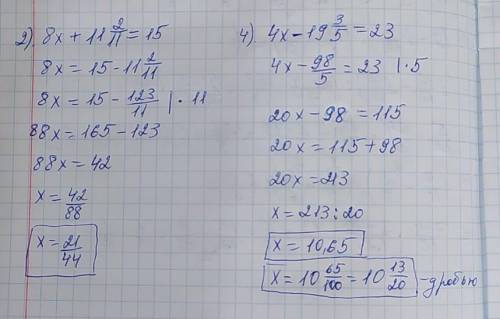 2). 8x + 11 2/11 = 15
8x = 15 - 11 2/11
8x = 15 - 123/11 | · 11
88x = 165 - 123
88x = 42
x = 42/88
x = 21/44
4). 4x - 19 3/5 = 23
4x - 98/5 = 23 | · 5
20x - 98 = 115
20x = 115 + 98
20x = 213
x = 213 : 20
x = 10,65
x = 10 65/100 = 10 13/20 - дробью